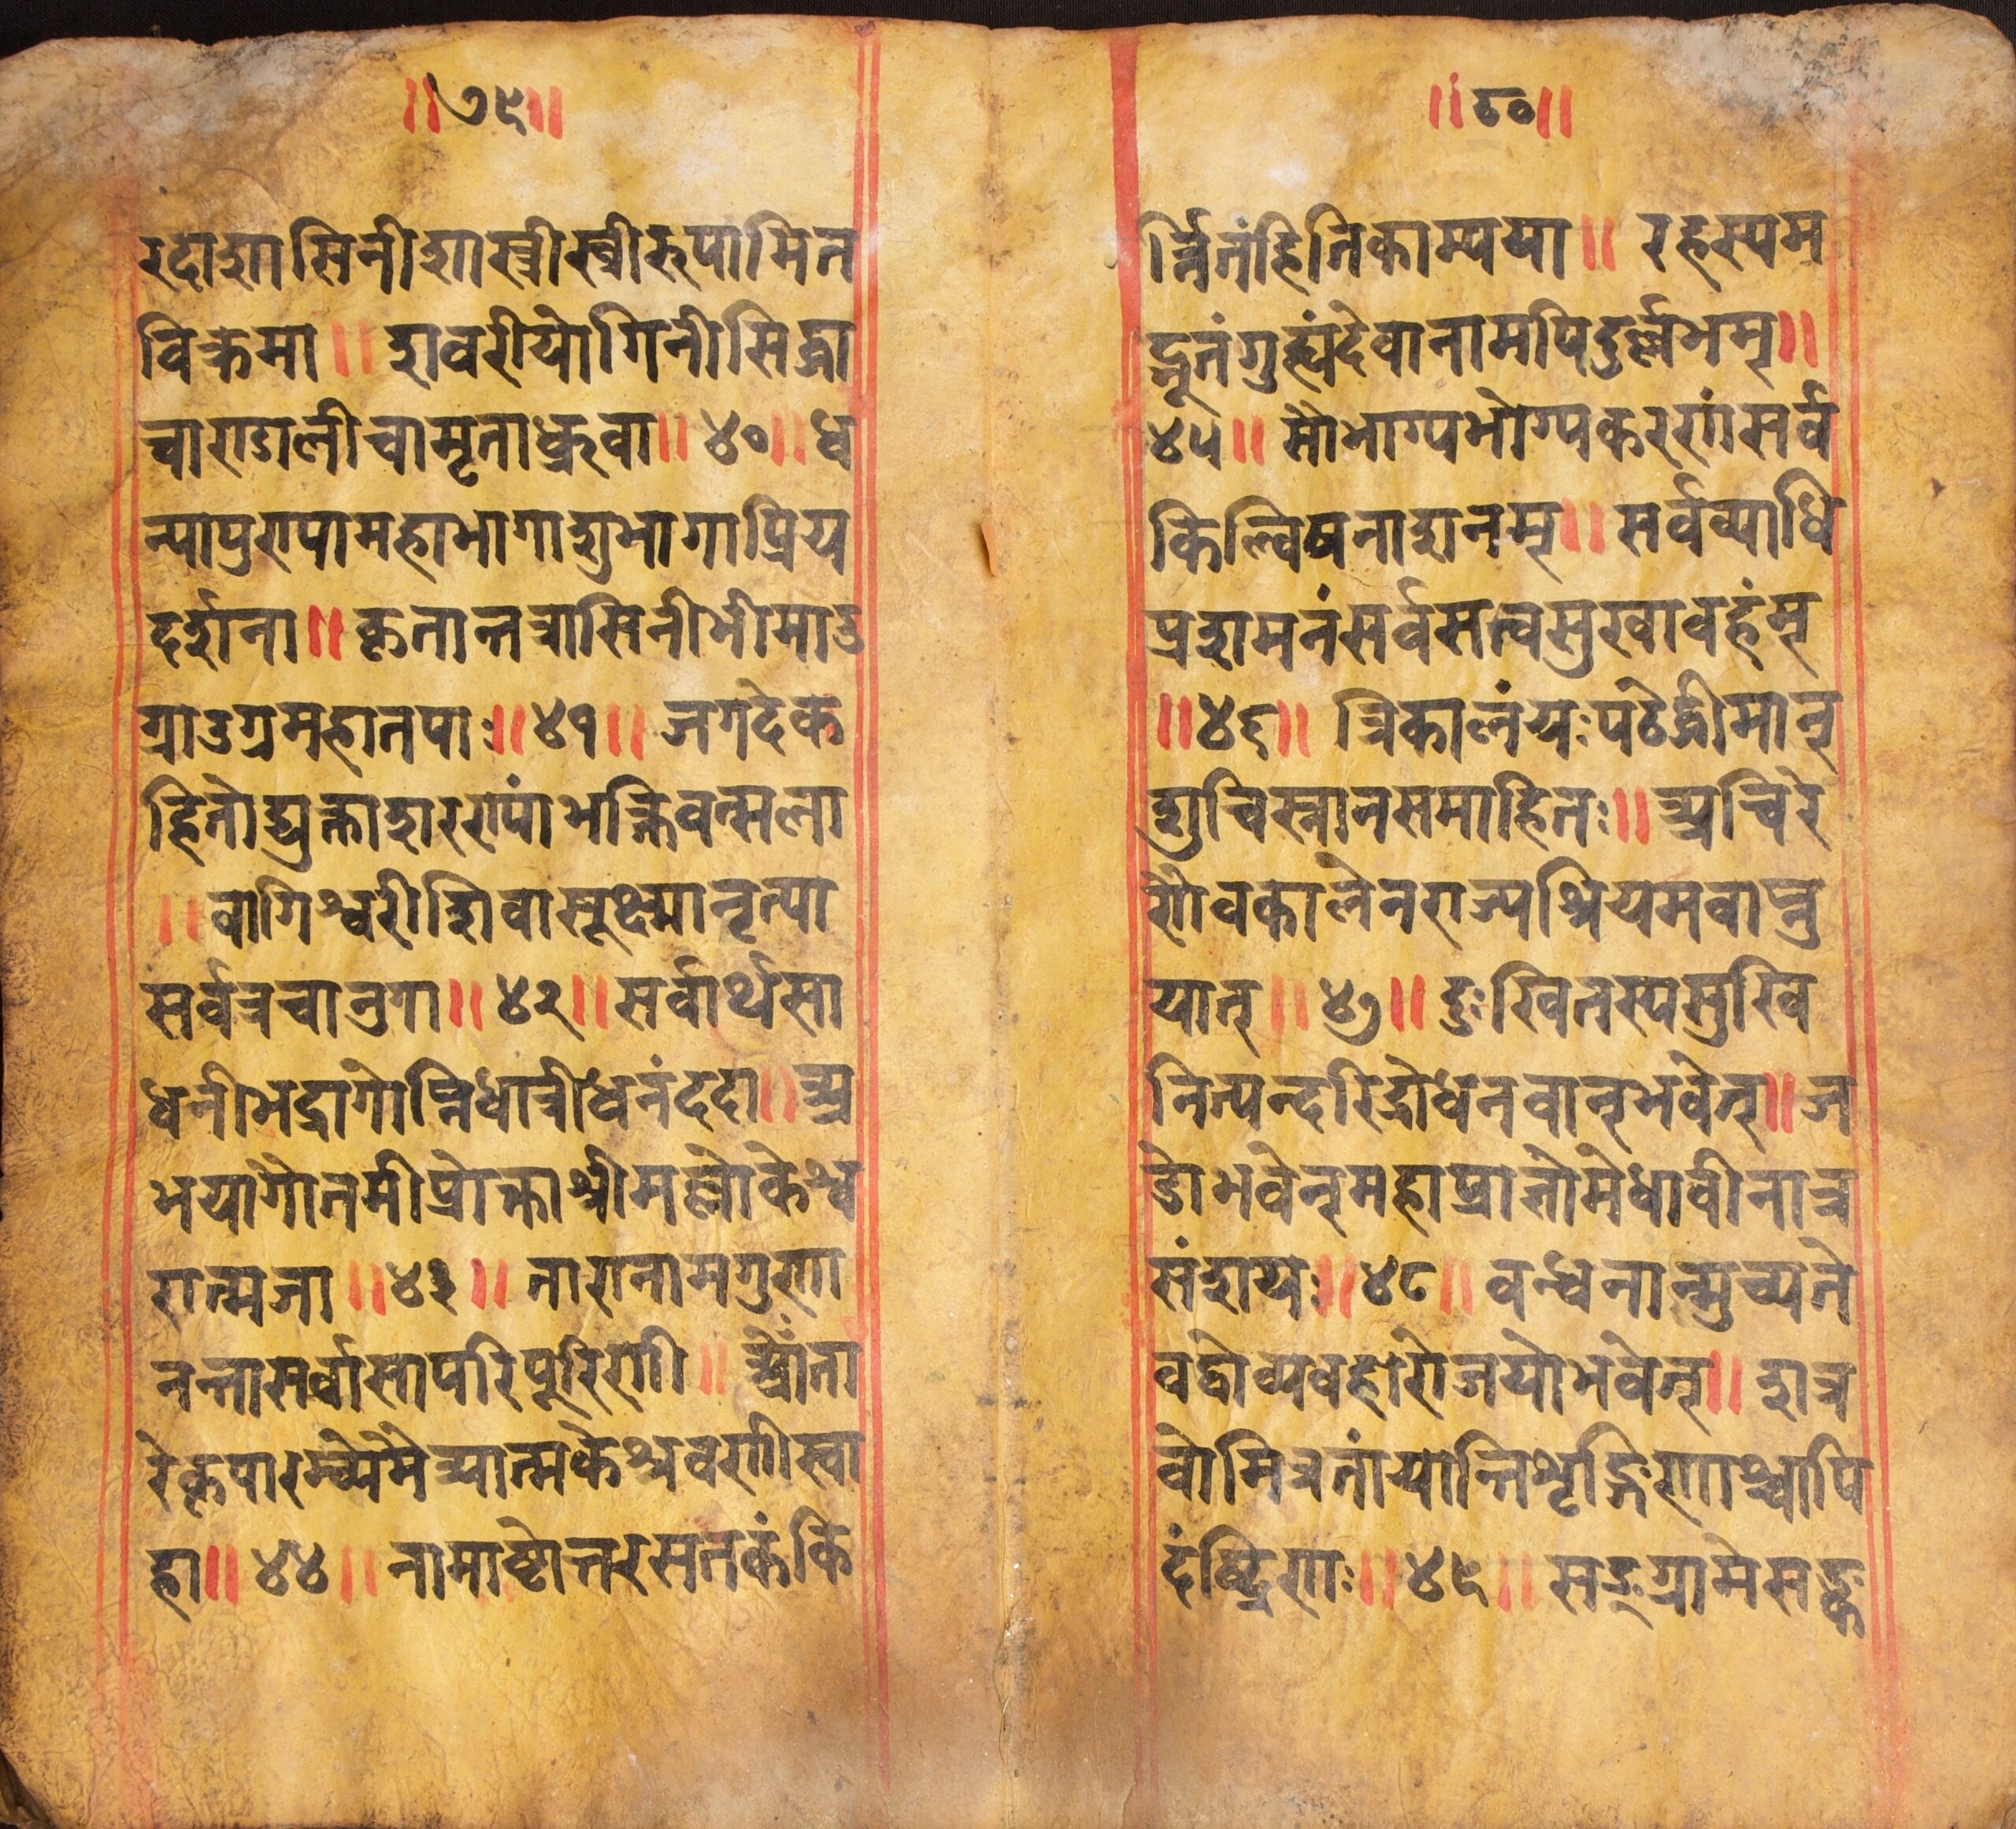 ॥७९॥
रदाशासिनीशास्त्रीस्त्रीरूपामित
विक्रमा॥ शवरीयोगिनीसिद्धा
चाराडालीचामृताध्रुवा॥४०॥ध
न्यापुरापामहाभागाशुभागाप्रिय
दर्शना॥ कृतान्तत्रासिनीभीमाउ
ग्राउग्रमहातपाः॥४१॥ जगदेक
हितोद्युक्ताशररापांभक्तिवत्सला
॥वागिश्वरीशिवासूक्ष्मानृत्या
सर्वत्रचानुगा॥४२॥सर्वार्थसा
धनीभद्रागोप्त्रिधात्रीधनंददा॥अ
भयागौतमीप्रोक्ताश्रीमल्लोकेश्व
रात्मजा॥४३॥ तारानामगुणा
नन्तासर्वासापरिपूरिणी॥ ॐता
रेकृपारम्येमैत्र्यात्मकेश्रवणीस्वा
हा॥४४॥ नामाष्टोत्तरसतकंकि
॥८०॥
र्त्तितंहितकाम्यया॥ रहस्यम
द्भूतंगुह्यंदेवानामपिदुर्ल्लभम्॥
४५॥ सौभाग्यभोग्यकरणंसर्व
किल्विषनाशनम्॥ सर्वव्याधि
प्रशमनंसर्वसत्वसुखावहंम्
॥४६॥ त्रिकालंयःपठेद्धीमान्
शुचिस्नानसमाहितः॥ अचिरे
णैवकालेनराज्यश्रियमवाप्नु
यात्॥४७॥ दुःखितस्यसुखि
नित्यन्दरिद्रोधनवान्भवेत्॥ज
डोभवेन्महाप्राज्ञोमेधावीनात्र
संशयः॥४८॥ वन्धनान्मुच्यते
वद्धोव्यवहारोजयोभवेत्॥ शत्र
वोमित्रतांयान्तिशृङ्गिणाश्चापि
दंष्ट्रिणाः॥४९॥ सङ्ग्रामेसङ्क